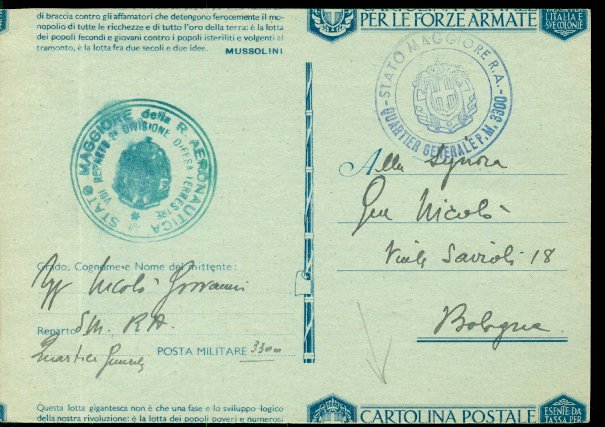 di braccia contro gli affamatori che detengono ferocemente il mo-
nopolio di tutte le ricchezze e di tutto l'oro della terra: è la lotta
dei popoli fecondi e giovani contro i popoli isteriliti e volgenti al
tramonto, è la lotta fra due secoli e due idee.
MUSSOLINI
STATO MAGGIORE della R. AERONAUTICA
VIII REPARTO 2ª DIVISIONE DIFESA TERRESTRE
Grado, Cognome e Nome del mittente:
Nicolò Giovanni
Reparto S.M. R.A.
Quartier Generale
POSTA MILITARE 3300
Questa lotta gigantesca non è che una fase e lo sviluppo logico
della nostra rivoluzione: è la lotta dei popoli poveri e numerosi
CARTOLINA POSTALE
PER LE FORZE ARMATE
L'ITALIA E
SVE COLONIE
STATO MAGGIORE R.A.
QUARTIER GENERALE P.M. 3300
Alla Signora
Nicolò
Viale Savioli 18
Bologna
CARTOLINA POSTALE
ESENTE DA
TASSA PER